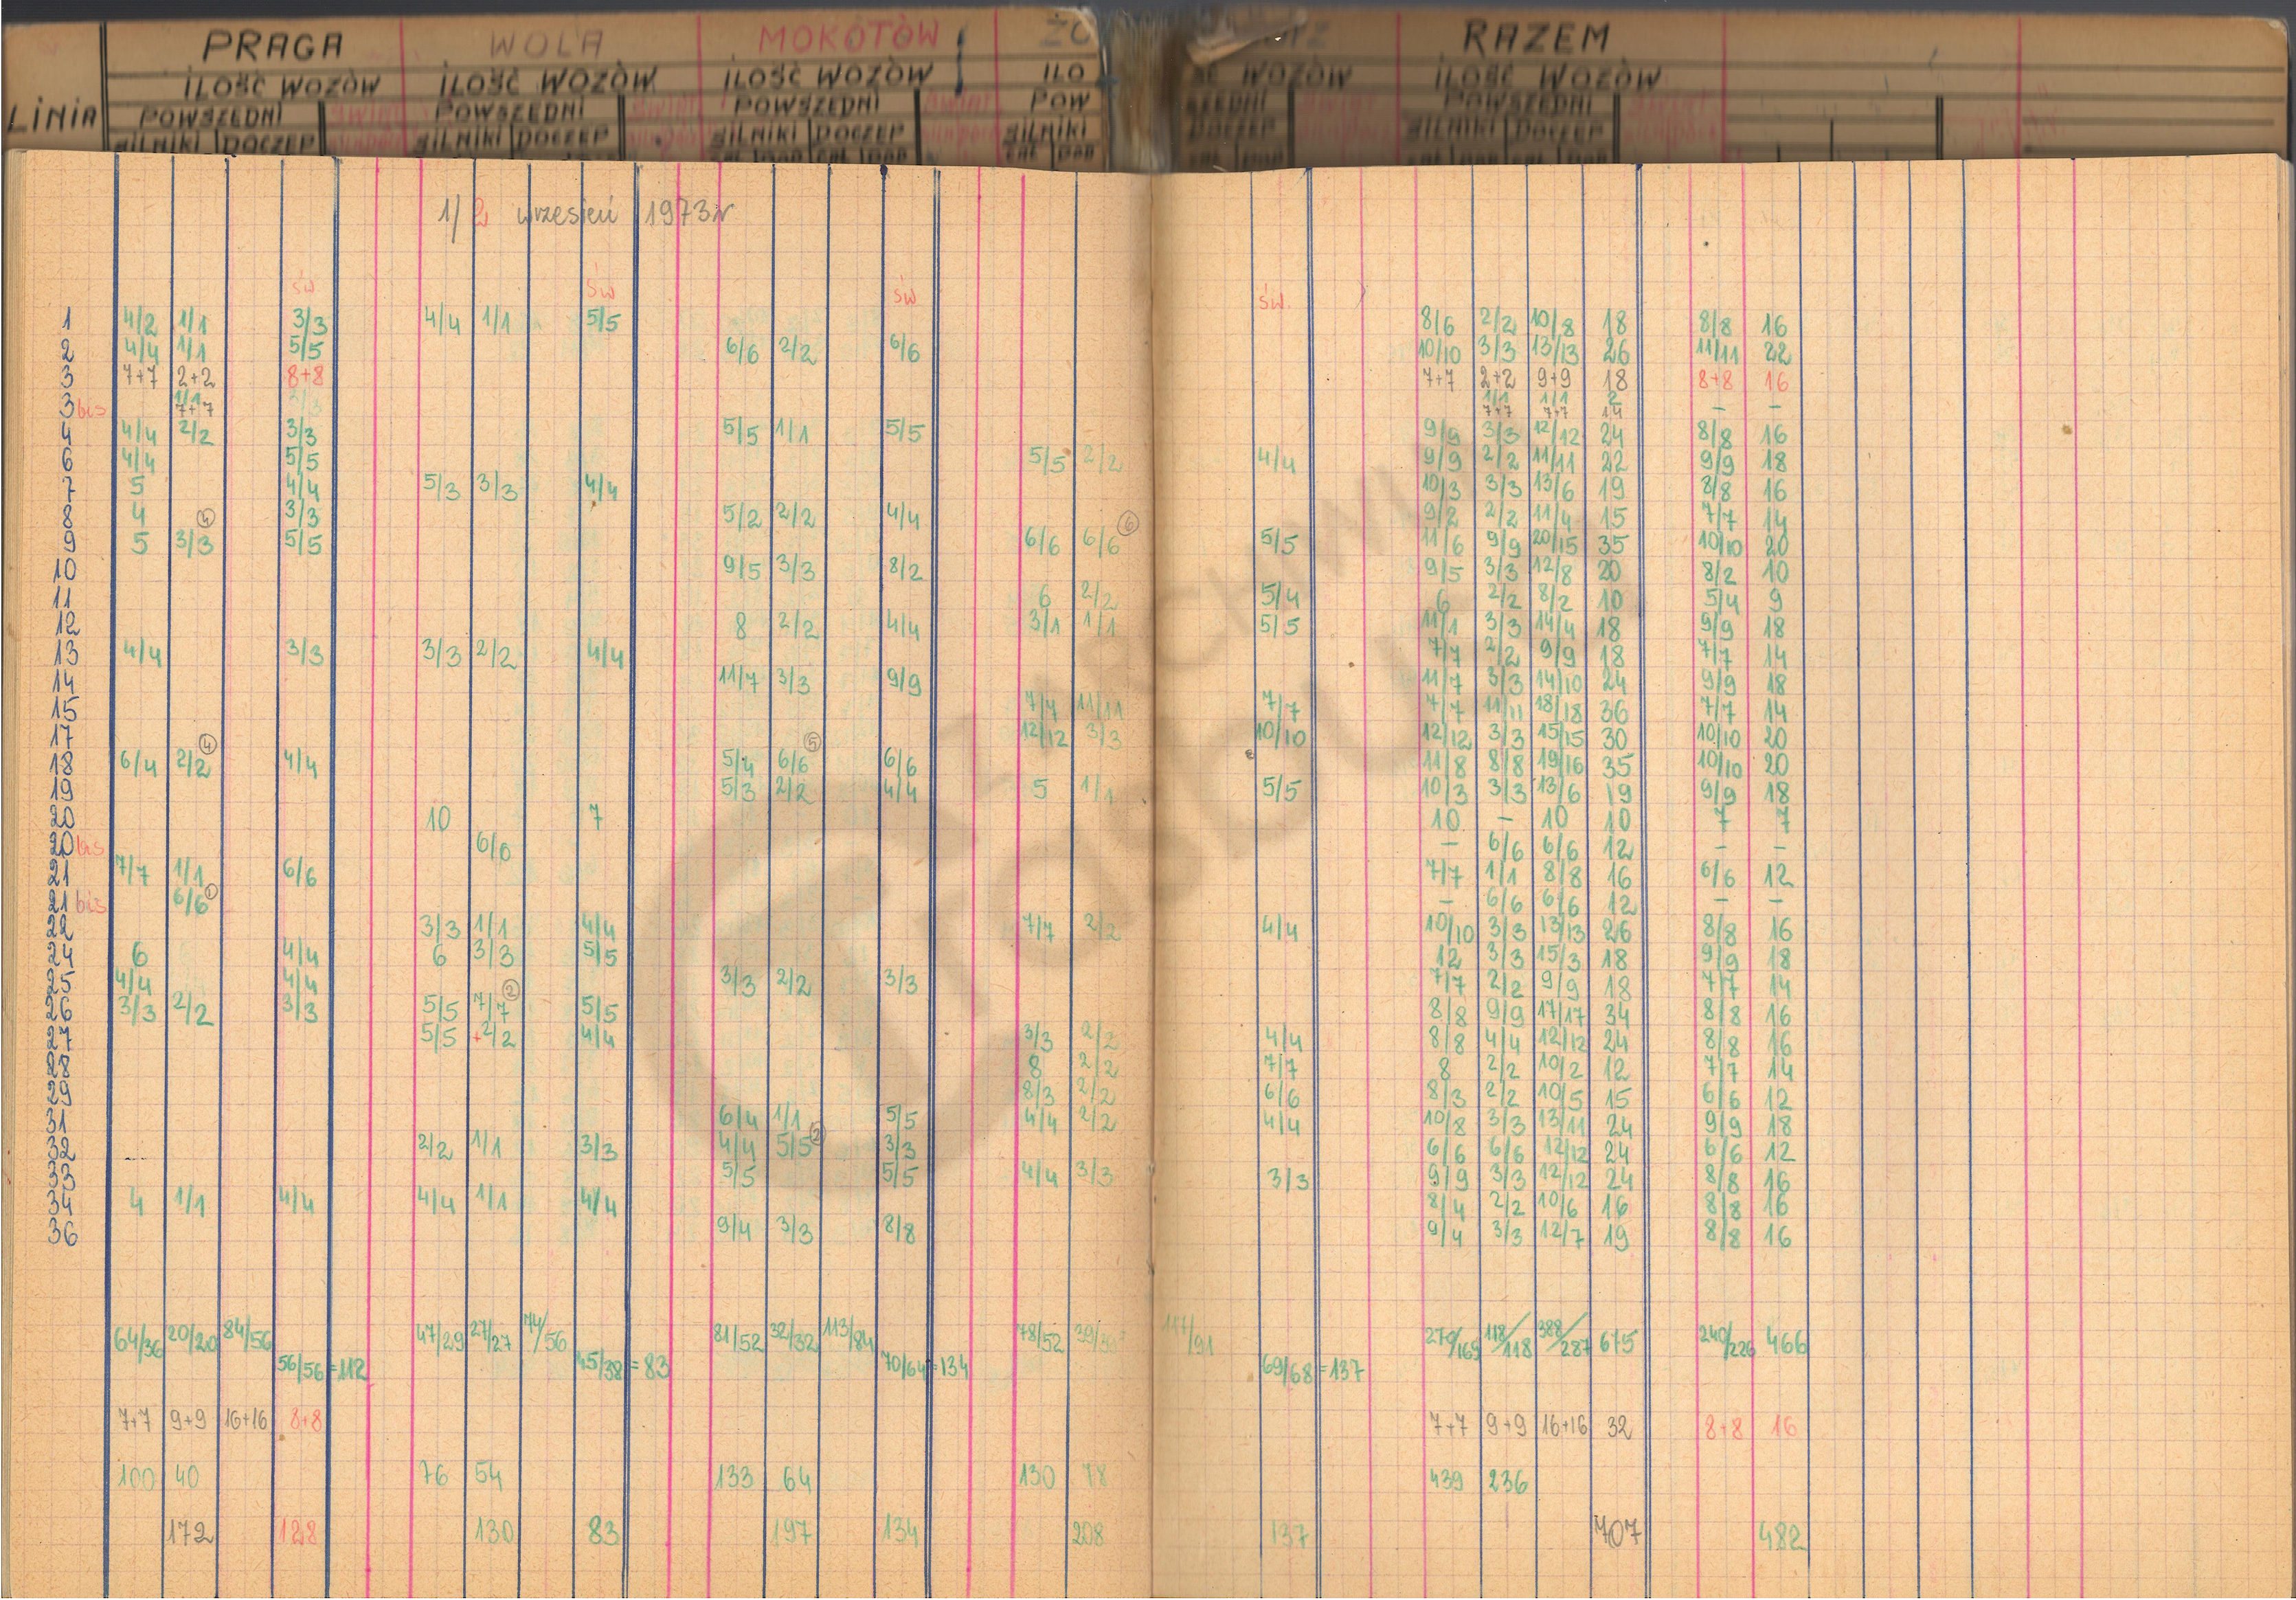 PRAGA WOLA MOKOTÓW ŻO RAZEM
ILOŚĆ WOZÓW ILOŚĆ WOZÓW ILOŚĆ WOZÓW ILO ŚĆ WOZÓW ILOŚĆ WOZÓW
LINIA POWSZEDNI POWSZEDNI POWSZEDNI POW SZEDNI POWSZEDNI
SILNIKI DOCZEP SILNIKI DOCZEP SILNIKI DOCZEP SILNIKI DOCZEP SILNIKI DOCZEP
1/2 wrzesień 1973r
św św św św.
1 4/2 1/1 3/3 4/4 1/1 5/5 8/6 2/2 10/8 18 8/8 16
2 4/4 1/1 5/5 6/6 2/2 6/6 10/10 3/3 13/13 26 11/11 22
3 7+7 2+2 8+8 7+7 2+2 9+9 18 8+8 16
1/1 1/1 1/1 2
3bis 7+7 7+7 7+7 14 – –
4 4/4 2/2 3/3 5/5 1/1 5/5 9/9 3/3 12/12 24 8/8 16
6 4/4 5/5 5/5 2/2 4/4 9/9 2/2 11/11 22 9/9 18
7 5 4/4 5/3 3/3 4/4 10/3 3/3 13/6 19 8/8 16
8 4 3/3 5/2 2/2 4/4 9/2 2/2 11/4 15 7/7 14
9 5 3/3 4 5/5 6/6 6/6 6 5/5 11/6 9/9 20/15 35 10/10 20
10 9/5 3/3 8/2 9/5 3/3 12/8 20 8/2 10
11 6 2/2 5/4 6 2/2 8/2 10 5/4 9
12 8 2/2 4/4 3/1 1/1 5/5 11/1 3/3 14/4 18 9/9 18
13 4/4 3/3 3/3 2/2 4/4 7/7 2/2 9/9 18 7/7 14
14 11/7 3/3 9/9 11/7 3/3 14/10 24 9/9 18
15 7/7 11/11 7/7 7/7 11/11 18/18 36 7/7 14
17 12/12 3/3 10/10 12/12 3/3 15/15 30 10/10 20
18 6/4 2/2 4 4/4 5/4 6/6 5 6/6 11/8 8/8 19/16 35 10/10 20
19 5/3 2/2 4/4 5 1/1 5/5 10/3 3/3 13/6 19 9/9 18
20 10 7 10 – 10 10 7 7
20bis 6/6 – 6/6 6/6 12 – –
21 7/7 1/1 6/6 7/7 1/1 8/8 16 6/6 12
21bis 6/6 – 6/6 6/6 12 – –
22 3/3 1/1 4/4 7/7 2/2 4/4 10/10 3/3 13/13 26 8/8 16
24 6 4/4 6 3/3 5/5 12 3/3 15/3 18 9/9 18
25 4/4 4/4 3/3 2/2 3/3 7/7 2/2 9/9 18 7/7 14
26 3/3 2/2 3/3 5/5 7/7 2 5/5 8/8 9/9 17/17 34 8/8 16
27 5/5 +2/2 4/4 3/3 2/2 4/4 8/8 4/4 12/12 24 8/8 16
28 8 2/2 7/7 8 2/2 10/2 12 7/7 14
29 8/3 2/2 6/6 8/3 2/2 10/5 15 6/6 12
31 6/4 1/1 5/5 4/4 2/2 4/4 10/8 3/3 13/11 24 9/9 18
32 2/2 1/1 3/3 4/4 5/5 2 3/3 6/6 6/6 12/12 24 6/6 12
33 5/5 5/5 4/4 3/3 3/3 9/9 3/3 12/12 24 8/8 16
34 4 1/1 4/4 4/4 1/1 4/4 8/4 2/2 10/6 16 8/8 16
36 9/4 3/3 8/8 9/4 3/3 12/7 19 8/8 16
64/36 20/20 84/56 47/29 27/27 74/56 81/52 32/32 113/84 78/52 39/39 117/91 270/169 118/118 388/287 675 240/226 466
56/56=112 45/38=83 70/64=134 69/68=137
7+7 9+9 16+16 8+8 7+7 9+9 16+16 32 8+8 16
100 40 76 54 133 64 130 78 439 236
172 128 130 83 197 134 208 137 707 482